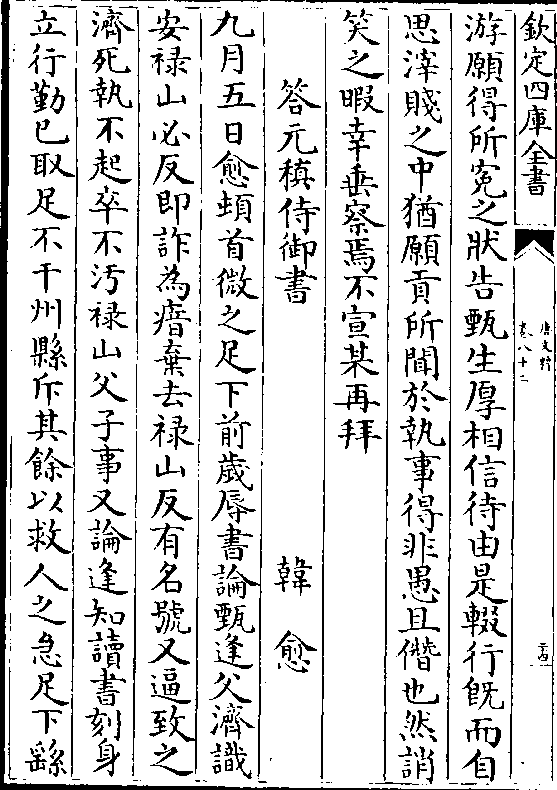 欽定四庫全書
唐文粹
卷八十二
游願得所寃之狀告甄生厚相信待由是輟行旣而自
思滓賤之中猶願貢所聞於執事得非愚且僭也然誚
笑之暇幸垂察焉不宣某再拜
答元稹侍御書
韓愈
九月五日愈頓首微之足下前歲辱書論甄逢父濟識
安祿山必反即詐為瘖棄去祿山反有名號又逼致之
濟死執不起卒不汚祿山父子事又論逢知讀書刻身
立行勤已取足不干州縣斥其餘以救人之急足下繇